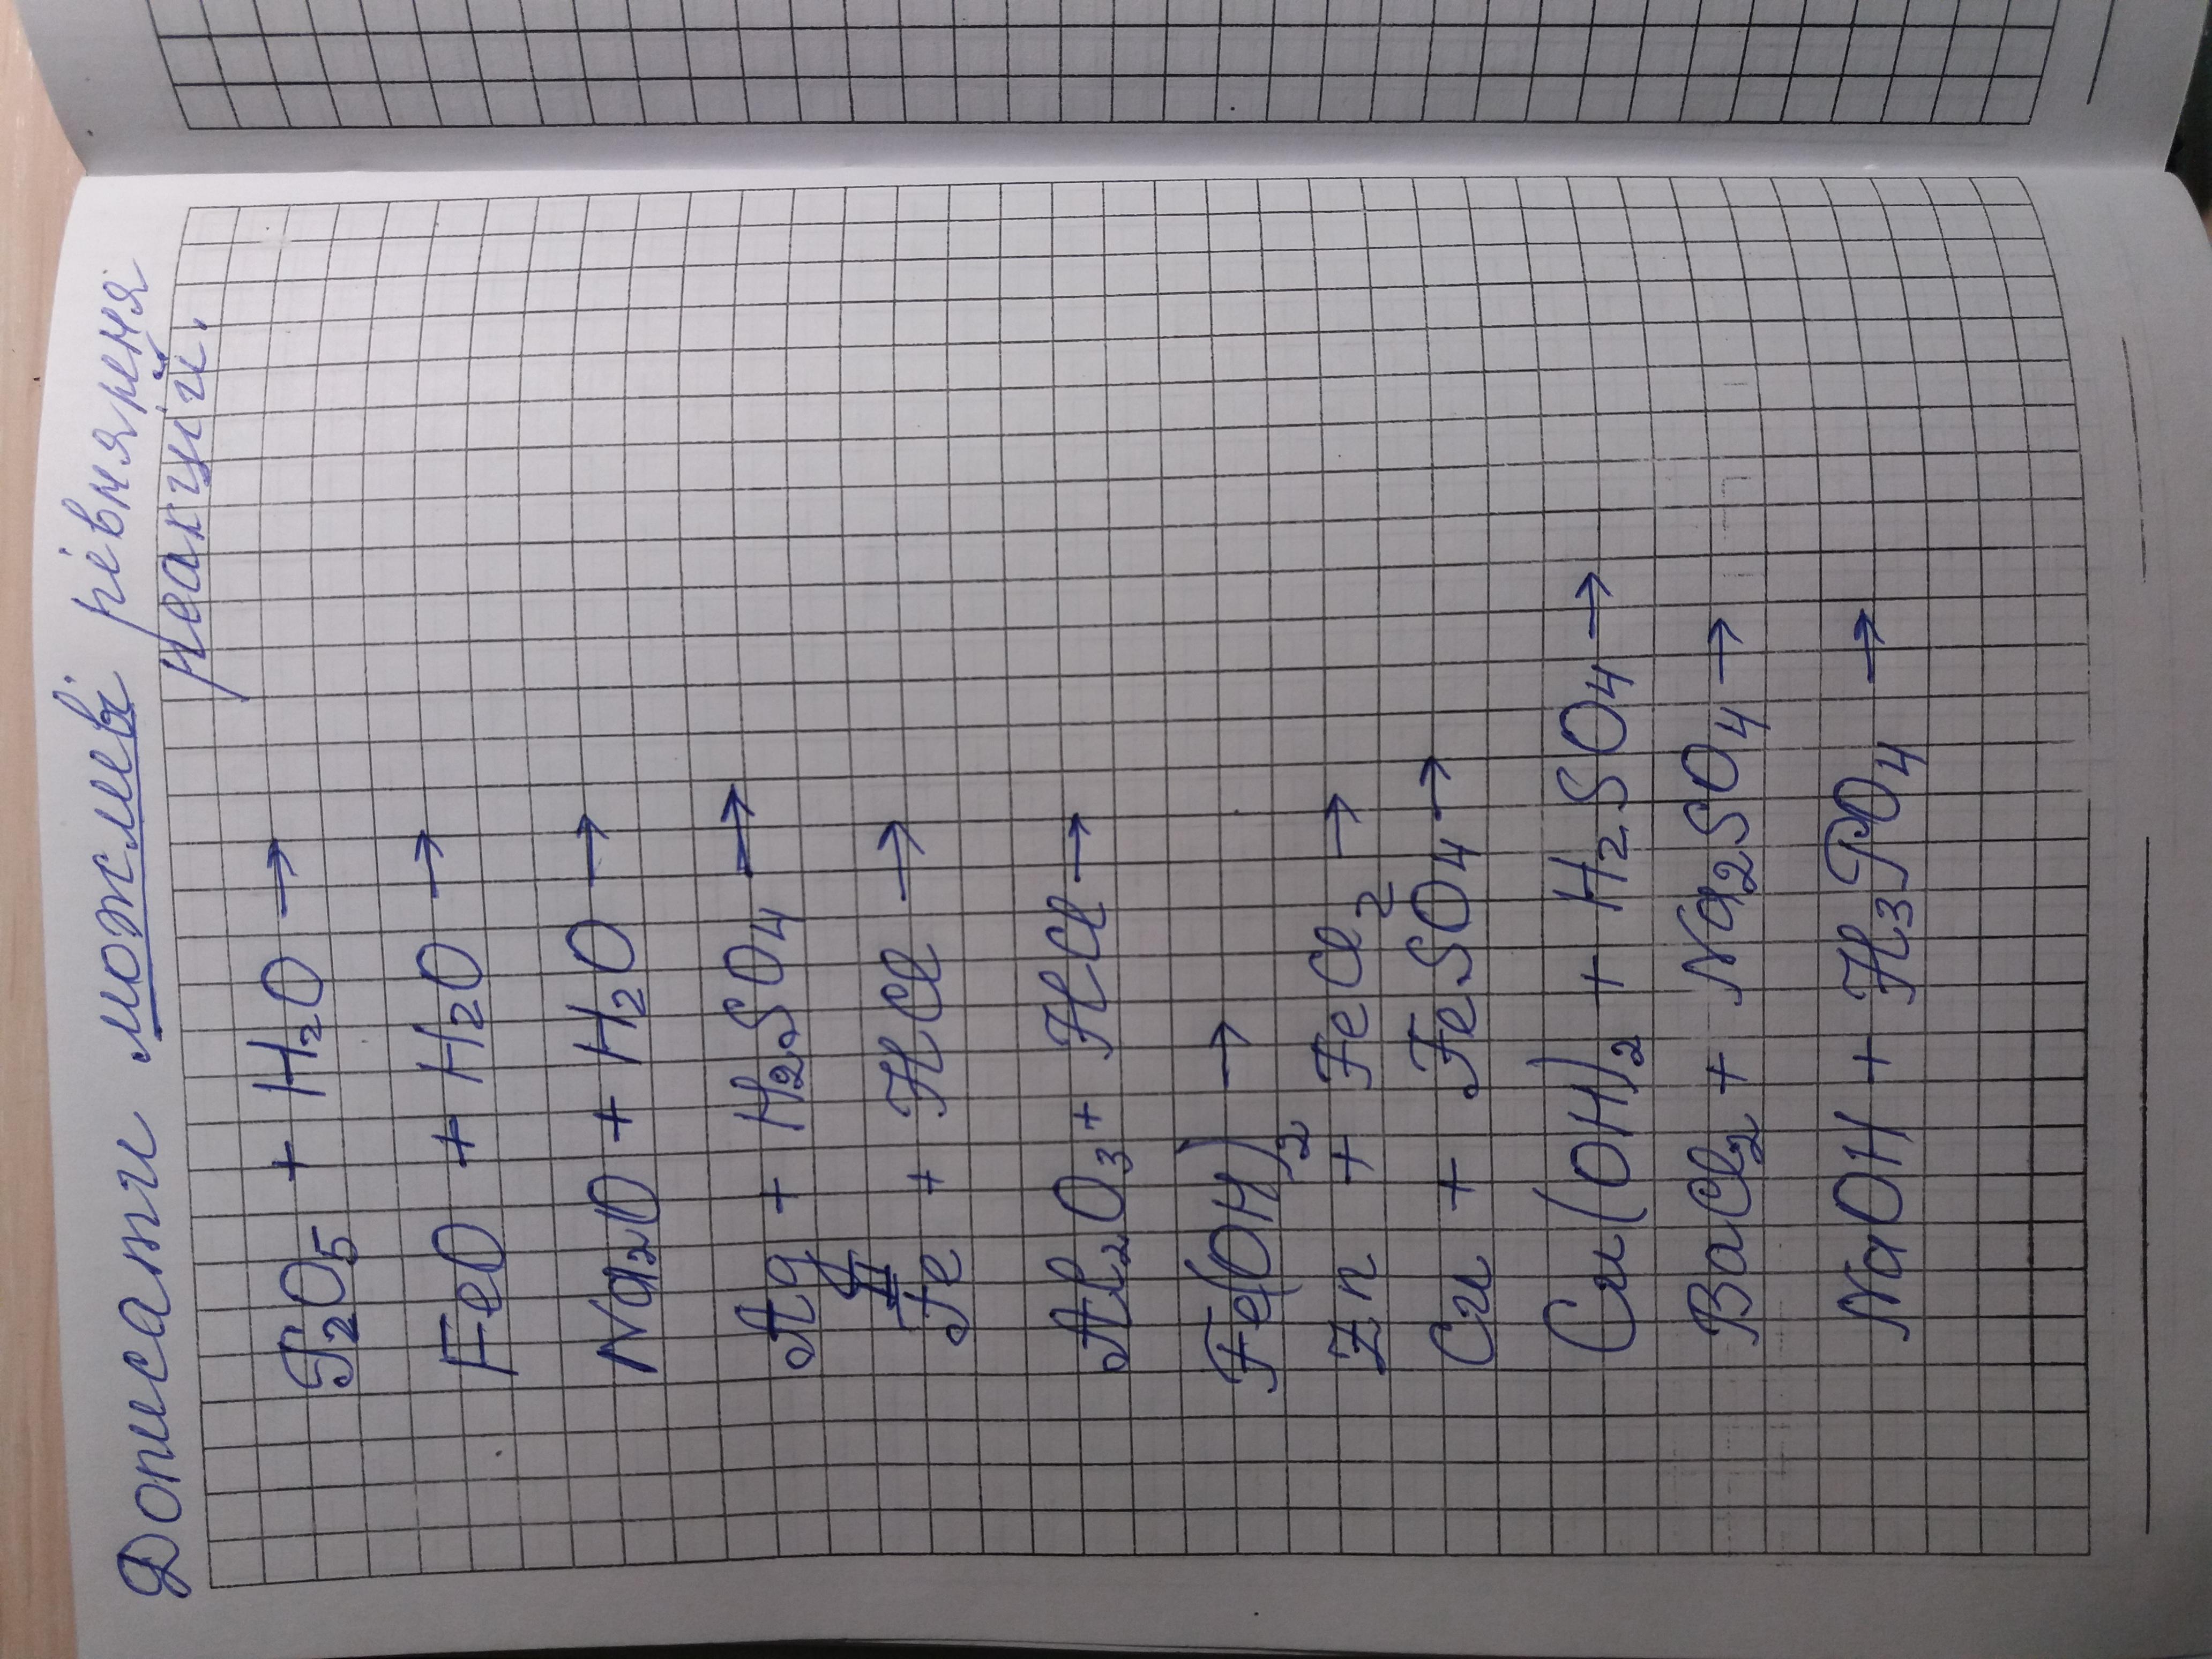 Дописати можливі рівняння
реакцій.
P₂O₅ + H₂O →
FeO + H₂O →
Na₂O + H₂O →
Ag + H₂SO₄ →
Fe + HCl →
Al₂O₃ + HCl →
Fe(OH)₂ →
Zn + FeCl₂ →
Cu + FeSO₄ →
Cu(OH)₂ + H₂SO₄ →
BaCl₂ + Na₂SO₄ →
NaOH + H₃PO₄ →